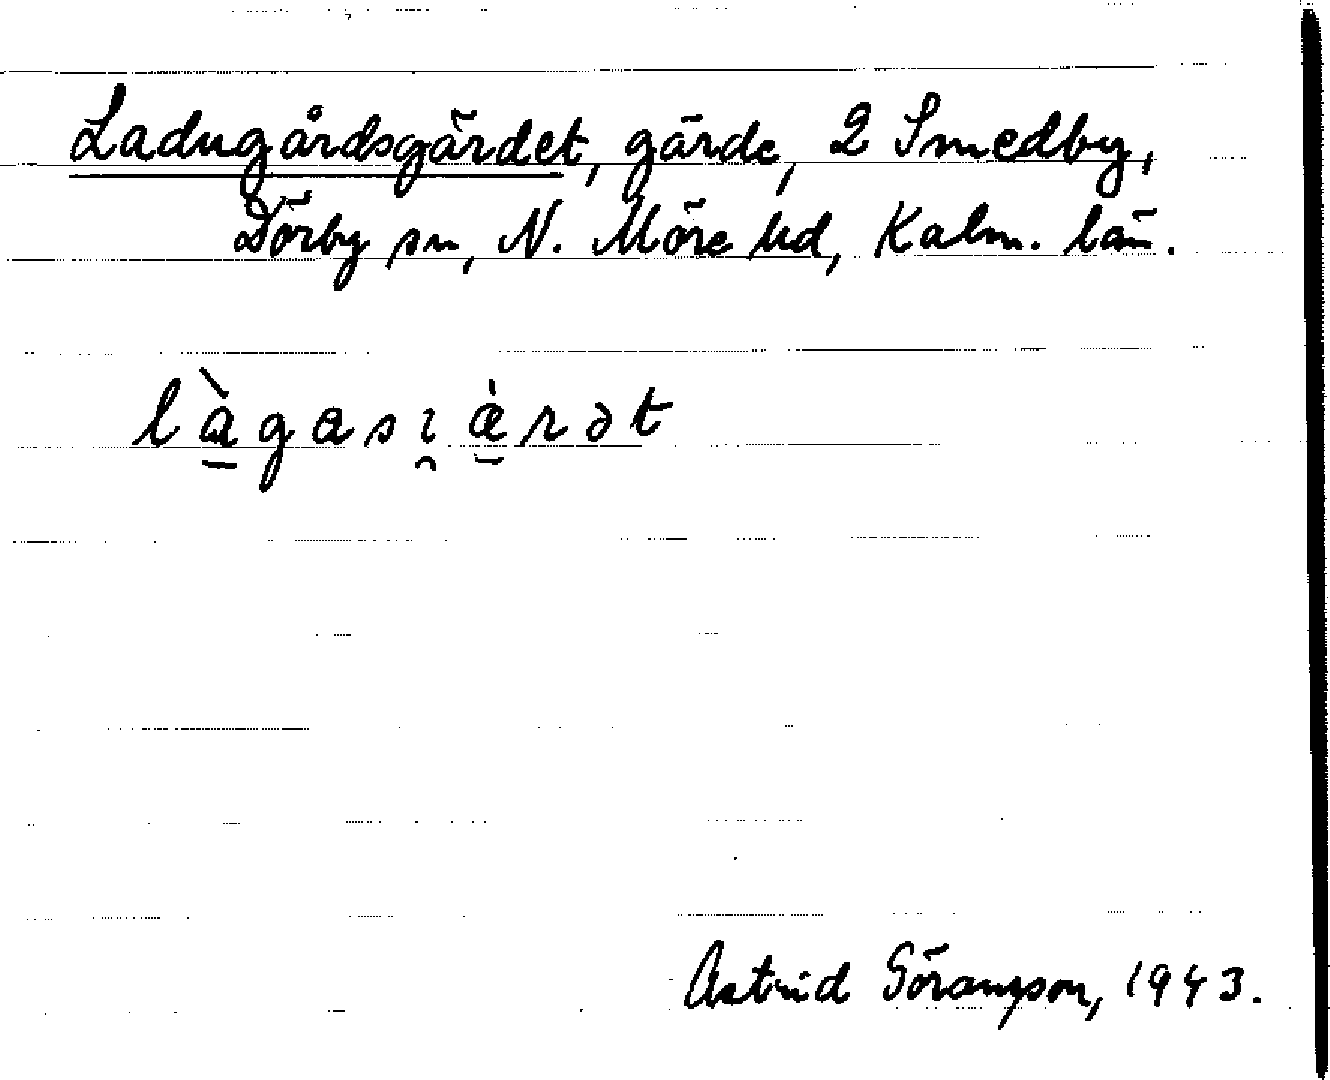 Ladugårdsgärdet, gärde, 2 Smedby,
Dörby sn, N. Möre hd, Kalm. län.
là̱gasɪ̯æ̱̀rət
Astrid Göransson, 1943.